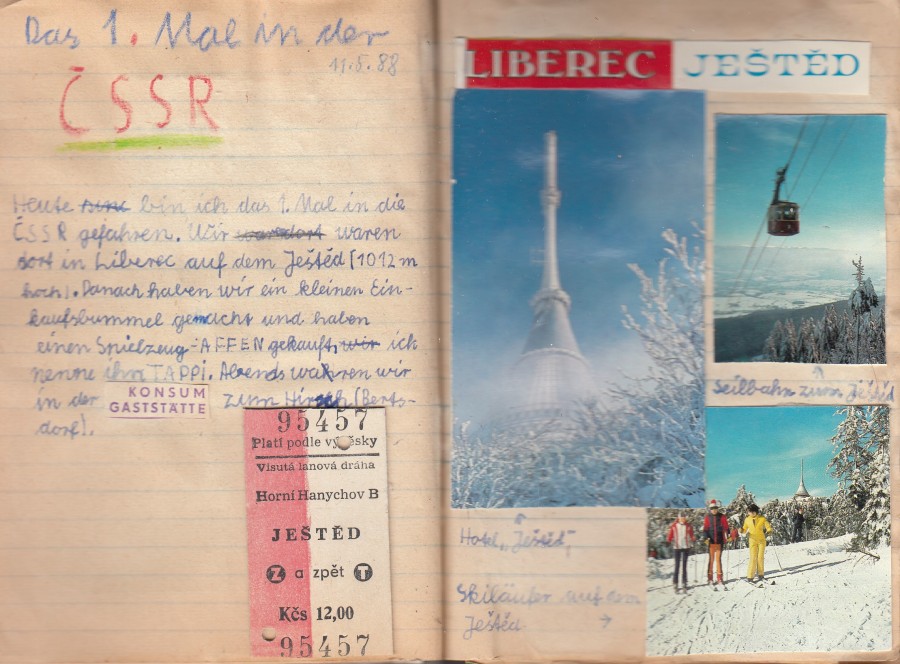 Das 1. Mal in der
11.5.88
ČSSR
Heute bin ich das 1. Mal in die
ČSSR gefahren. Wir waren
dort in Liberec auf dem Ještěd (1012 m
hoch). Danach haben wir ein kleinen Ein-
kaufsbummel gemacht und haben
einen Spielzeug-AFFEN gekauft, wir ich
nenne ihn TAPPI. Abends wahren wir
in der KONSUM GASTSTÄTTE zum Hirsch (Berts-
dorf).
95457
Platí podle vyhlášky
Visutá lanová dráha
Horní Hanychov B
JEŠTĚD
Z a zpět T
Kčs 12,00
95457
LIBEREC JEŠTĚD
Seilbahn zum Ještěd
Hotel „Ještěd"
Skiläufer auf dem
Ještěd →